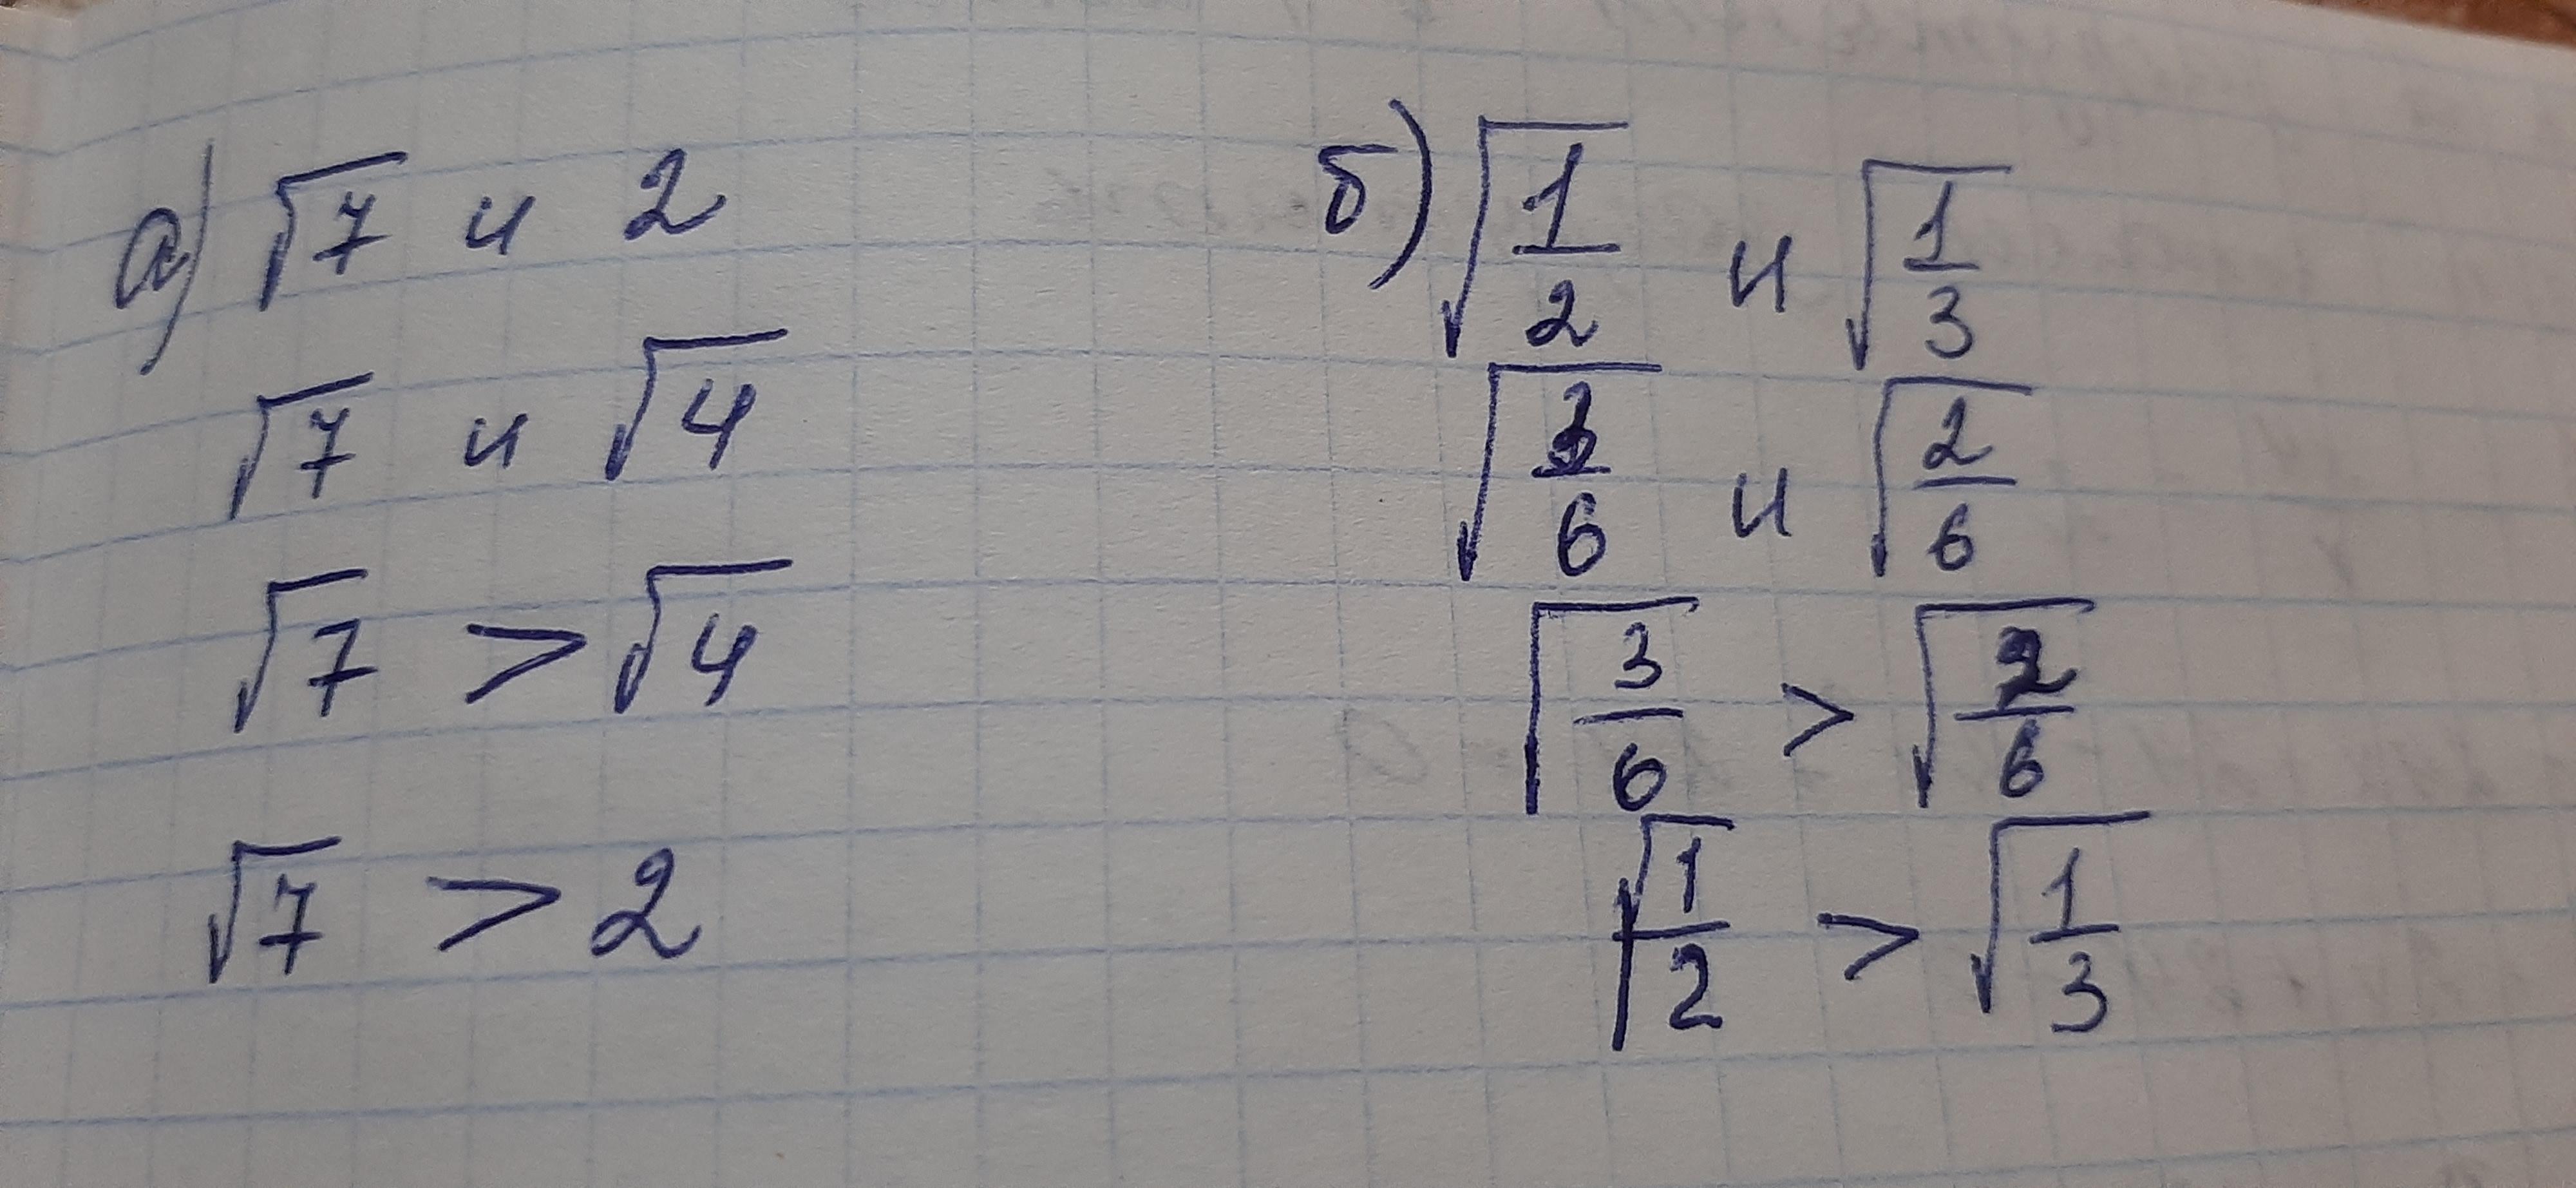 а) √7 и 2
√7 и √4
√7 > √4
√7 > 2
б) √(1/2) и √(1/3)
√(3/6) и √(2/6)
√(3/6) > √(2/6)
√(1/2) > √(1/3)